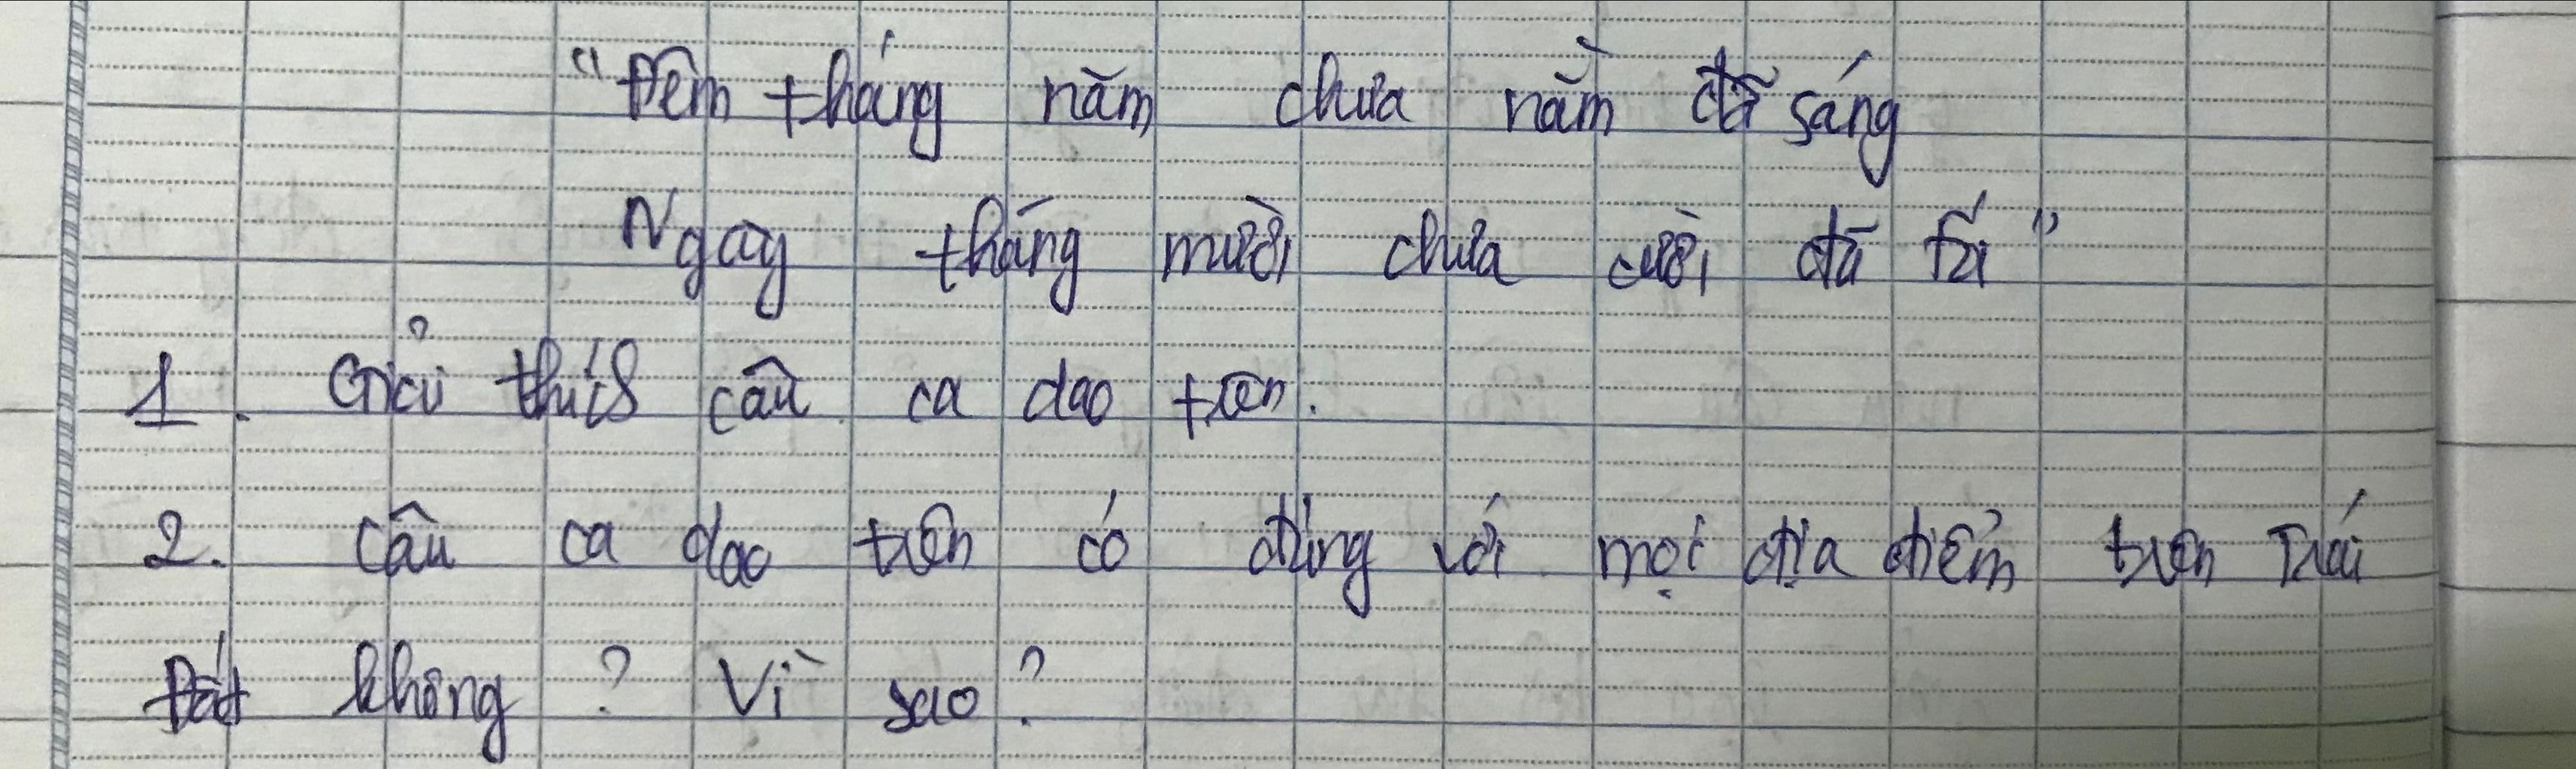 "Đêm tháng năm chưa nằm đã sáng
Ngày tháng mười chưa cười đã tối"
1. Giải thích câu ca dao trên.
2. Câu ca dao trên có đúng với mọi địa điểm trên Trái
Đất không? Vì sao?